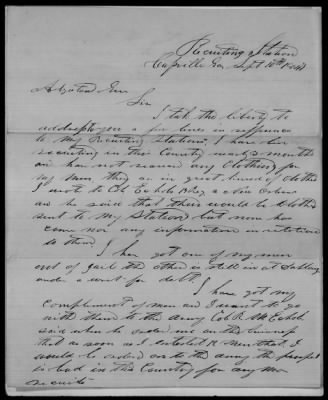 Recruiting Station
Sept 10th
Sir
I take the liberty to
address you a few lines in reference
to my Recruiting Station. I have been
recruiting in this County months
and has not received any clothing for
my men, they are in great need of clothes
I wrote to Col
and he said that there would be clothes
sent to my Station but none has
come nor any information in relation
to them.
I have got one of my men
out of jail the other is still in at
under a writ for debt.
I have got my
compliment of men and I want to go
with them to the army Col
said when he ordered me on this
that as soon as I enlisted men that I
would be ordered on to the army the prospect
is bad in this Country for any more
recruits